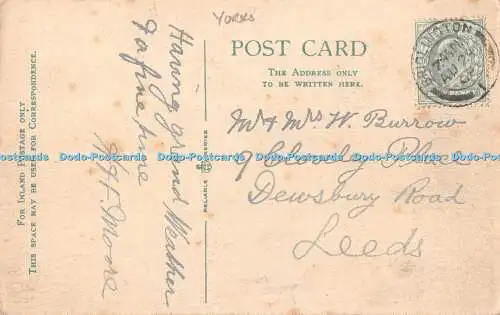 YORKS
POST CARD
THE ADDRESS ONLY
TO BE WRITTEN HERE.
FOR INLAND POSTAGE ONLY
THIS SPACE MAY BE USED FOR CORRESPONDENCE.
Having grand Weather
To a fine time
H. Moore
RELIABLE SERIES
BRIDLINGTON
Mr & Mrs W. Burrow
9 Cleverly Place
Dewsbury Road
Leeds
Dodo-Postcards Dodo-Postcards Dodo-Postcards Dodo-Postcards Dodo-Postcards